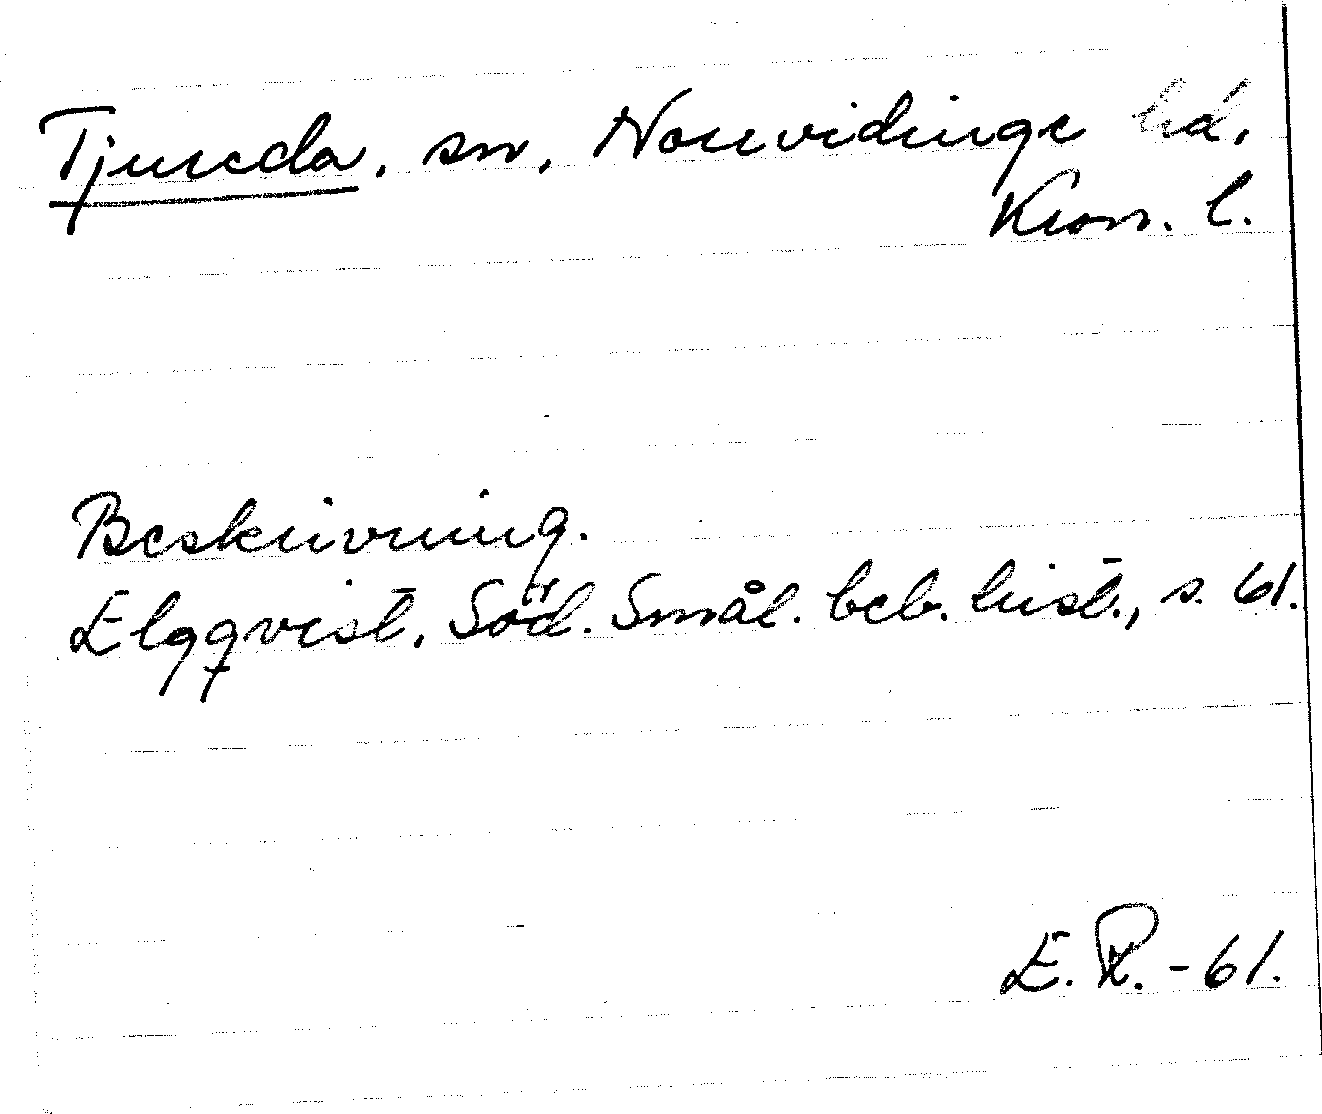 Tjureda, sn, Norrvidinge hd,
Kron. l.
Beskrivning.
Elgqvist, Söd. Smål. beb. hist., s. 61.
E. R. -61.